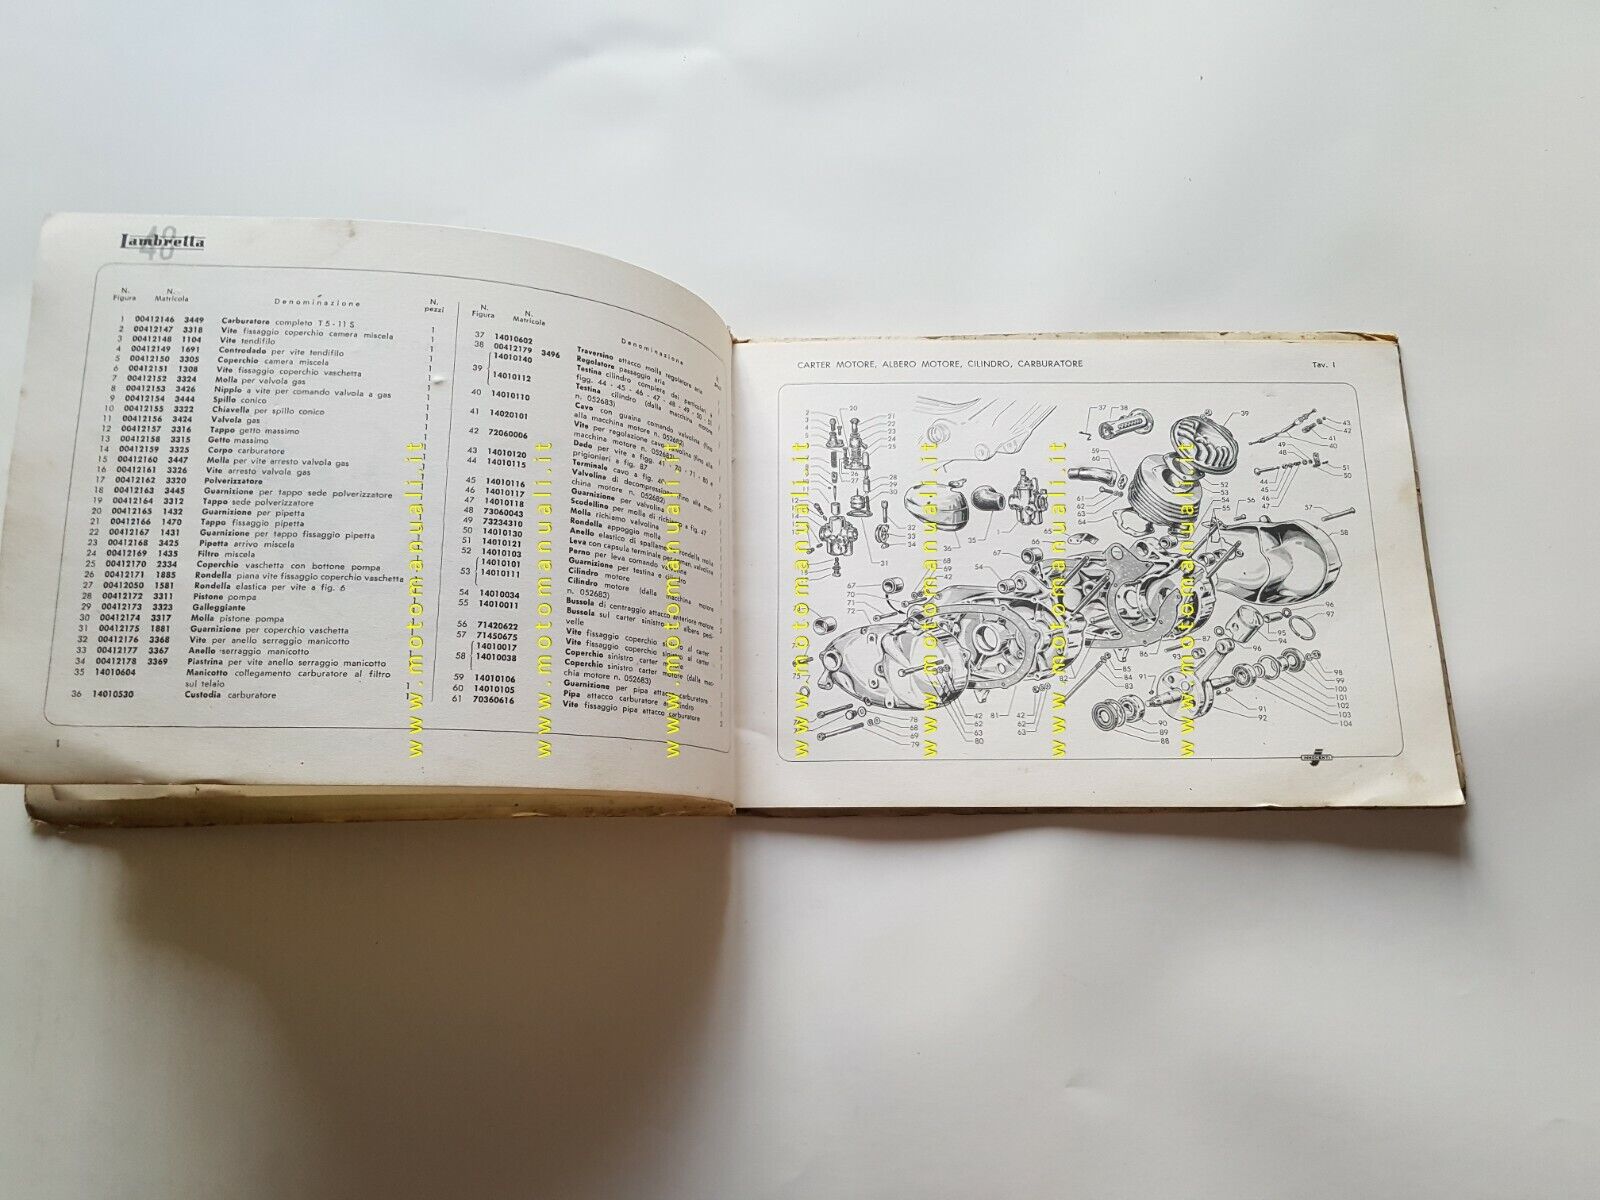 Lambretta 48
N. Figura N. Matricola Denominazione N. pezzi
1 00412146 3449 Carburatore completo T 5 - 11 S 1
2 00412147 3318 Vite fissaggio coperchio camera miscela 1
3 00412148 1104 Vite tendifilo 1
4 00412149 1691 Controdado per vite tendifilo 1
5 00412150 3305 Coperchio camera miscela 1
6 00412151 1308 Vite fissaggio coperchio vaschetta
7 00412152 3324 Molla per valvola gas
8 00412153 3426 Nipplo a vite per comando valvola a gas
9 00412154 3444 Spillo conico
10 00412155 3322 Chiavella per spillo conico
11 00412156 3424 Valvola gas
12 00412157 3316 Tappo getto massimo
13 00412158 3315 Getto massimo
14 00412159 3325 Corpo carburatore
15 00412160 3447 Molla per vite arresto valvola gas
16 00412161 3326 Vite arresto valvola gas
17 00412162 3320 Polverizzatore
18 00412163 3445 Guarnizione per tappo sede polverizzatore
19 00412164 3312 Tappo sede polverizzatore
20 00412165 1432 Guarnizione per pipetta
21 00412166 1470 Tappo fissaggio pipetta
22 00412167 1431 Guarnizione per tappo fissaggio pipetta
23 00412168 3425 Pipetta arrivo miscela
24 00412169 1435 Filtro miscela
25 00412170 2334 Coperchio vaschetta con bottone pompa
26 00412171 1885 Rondella piana vite fissaggio coperchio vaschetta
27 00412050 1581 Rondella elastica per vite a fig. 6
28 00412172 3311 Pistone pompa
29 00412173 3323 Galleggiante
30 00412174 3317 Molla pistone pompa
31 00412175 1881 Guarnizione per coperchio vaschetta
32 00412176 3368 Vite per anello serraggio manicotto
33 00412177 3367 Anello serraggio manicotto
34 00412178 3369 Piastrina per vite anello serraggio manicotto
35 14010604 Manicotto collegamento carburatore al filtro
sul telaio
36 14010530 Custodia carburatore
1
N. Figura N. Matricola Denominazione
37 14010602 Traversino attacco molla regolatore aria
38 00412179 3496 Regolatore passaggio aria
39 14010140 Testina cilindro completa dei particolari a
figg. 44 - 45 - 46 - 47 - 48 - 49 - 50 - 51
14010112 Testina cilindro (dalla macchina motore
n. 052683)
40 14010110 Cavo con guaina comando valvolina (fino
alla macchina motore n. 052682)
41 14020101 Vite per regolazione cavo valvolina (fino alla
macchina motore n. 052682)
42 72060006 Dado per vite a figg. 41 - 70 - 71 - 80 e
prigionieri a fig. 87
43 14010120 Terminale cavo a fig. 40
44 14010115 Valvolina di decompressione (fino alla macchina motore n. 052682)
45 14010116 Guarnizione per valvolina
46 14010117 Scodellino per molla di richiamo a fig. 47
47 14010118 Molla richiamo valvolina
48 73060043 Rondella appoggio molla
49 73234310 Anello elastico di spallamento rondella molla
50 14010130 Leva con capsula terminale per com. valvolina
51 14010121 Perno per leva comando valvolina
52 14010103 Guarnizione per testina e cilindro
53 14010101 Cilindro motore
14010111 Cilindro motore (dalla macchina motore
n. 052683)
54 14010034 Bussola di centraggio attacco anteriore motore
55 14010011 Bussola sul carter sinistro per albero pedivelle
56 71420622 Vite fissaggio coperchio sinistro al carter
57 71450675 Vite fissaggio coperchio sinistro al carter
58 14010017 Coperchio sinistro carter motore
14010038 Coperchio sinistro carter motore (dalla macchina motore n. 052683)
59 14010106 Guarnizione per pipa attacco carburatore
60 14010105 Pipa attacco carburatore al cilindro
61 70360616 Vite fissaggio pipa attacco carburatore
CARTER MOTORE, ALBERO MOTORE, CILINDRO, CARBURATORE Tav. I
INNOCENTI
www.motomanuali.it
www.motomanuali.it
www.motomanuali.it
www.motomanuali.it
www.motomanuali.it
www.motomanuali.it
www.motomanuali.it